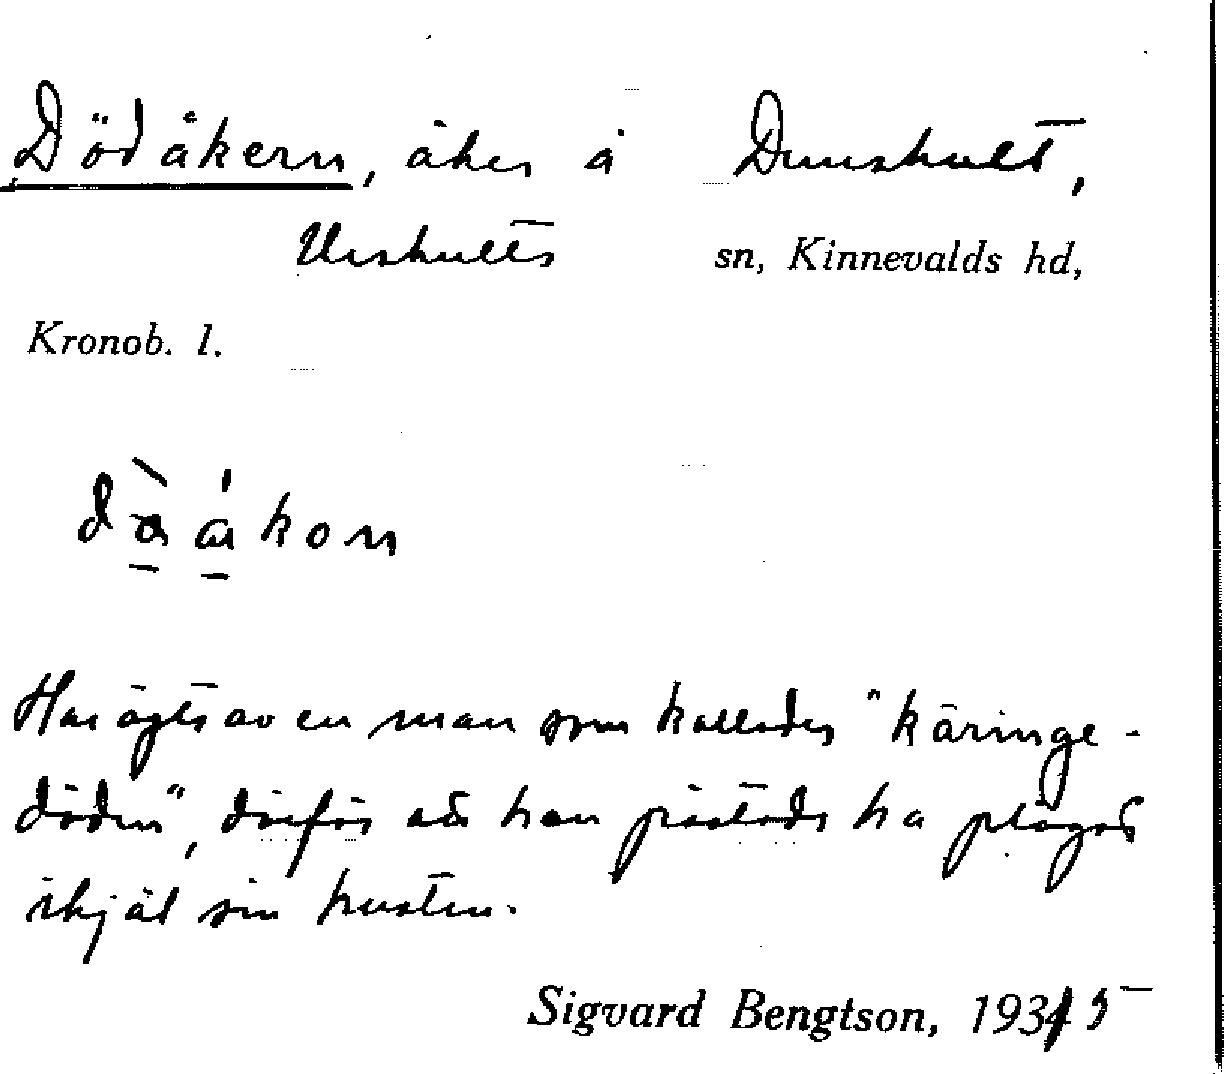 Dödåkern, åker å Dunshult,
Urshults sn, Kinnevalds hd,
Kronob. l.
Har ägts av en man som kallades "käringe-
döden", därför att han påstods ha plågat
ihjäl sin hustru.
Sigvard Bengtson, 1935